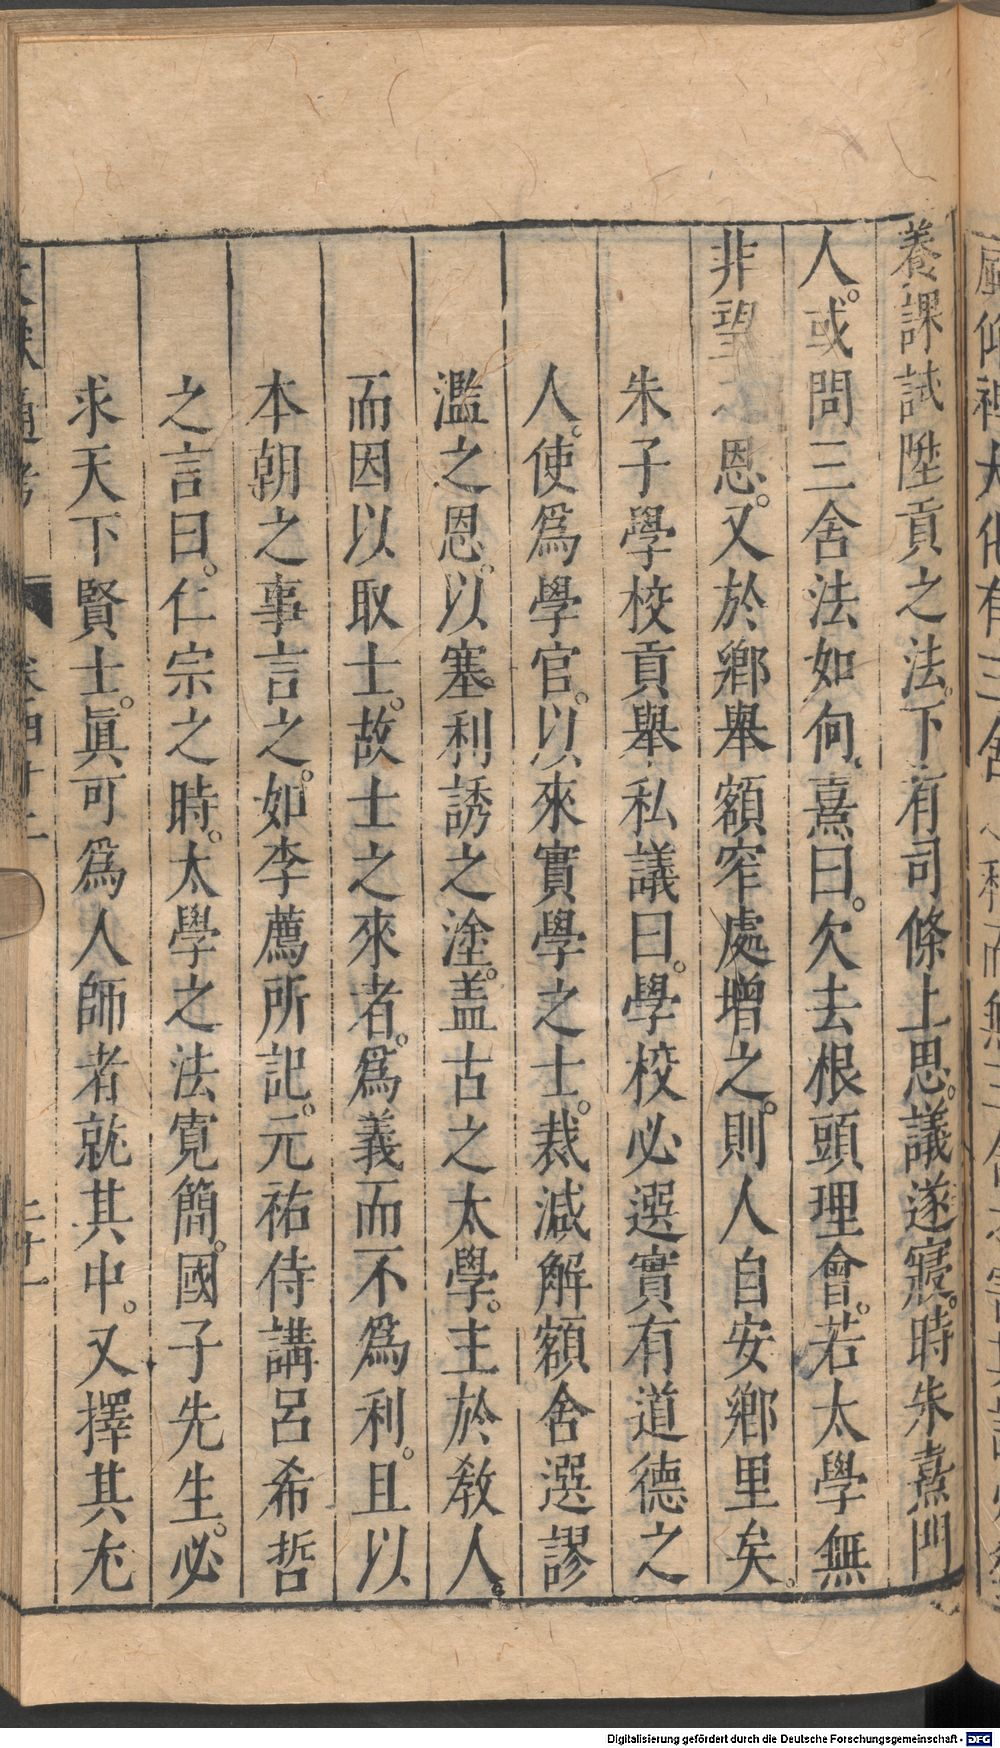 養課試陞貢之法。下有司條上思。議遂寢。時朱熹門
人。或問三舍法如何。熹曰。欠去根頭理會。若太學無
非望之恩。又於鄉舉額窄處增之。則人自安鄉里矣。
朱子學校貢舉私議曰。學校必選實有道德之
人。使爲學官。以來實學之士。裁減解額舍選謬
濫之恩。以塞利誘之塗。盖古之太學。主於教人。
而因以取士。故士之來者。爲義而不爲利。且以
本朝之事言之。如李廌所記。元祐侍講呂希哲
之言曰。仁宗之時。太學之法寬簡。國子先生。必
求天下賢士。眞可爲人師者就其中。又擇其尤
通考
卷四十二
二十一
Digitalisierung gefördert durch die Deutsche Forschungsgemeinschaft - DFG